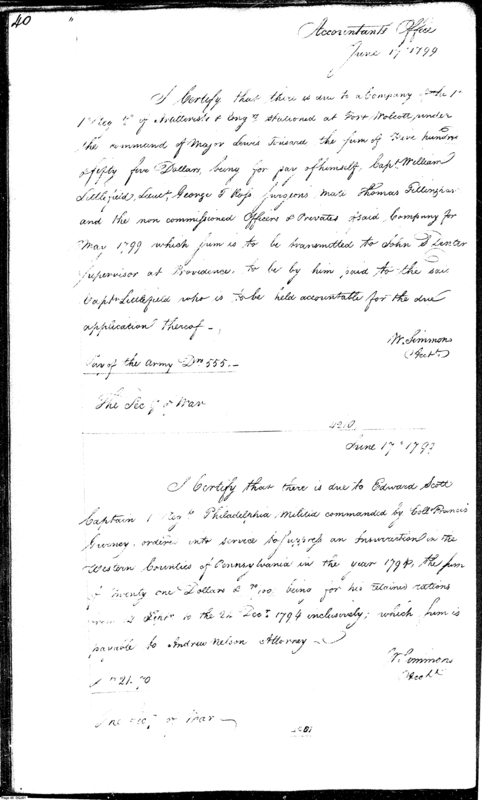 40
Accountants Office
June 17th 1799
I Certify that there is due to a Company of the 1st
1st Regt of Artillerists & Engrs stationed at Fort Wolcott under
the command of Major Lewis Tousard the sum of Five hundred
& fifty five Dollars, being for pay of himself, Capt William
Littlefield, Lieut George T Ross Surgeons mate Thomas
and the non commissioned Officers & Privates of said Company for
May 1799 which sum is to be transmitted to John S Dexter
Supervisor at Providence. to be by him paid to the said
Capt Littlefield who is to be held accountable for the due
application thereof
W. Simmons
Acct.
Pay of the Army Drs 555.
The Secy of War
June 17th 1799
I Certify that there is due to Edward Scott
Captain 1 Regt Philadelphia Militia commanded by Coll Francis
Gurney. ordered into service to suppress an Insurrection in the
Western Counties of Pennsylvania in the year 1794, the sum
of Twenty one Dollars & 70/100 being for his retained rations
from 2 to the 24 Decr 1794 inclusively; which sum is
payable to Andrew Nelson Attorney
W. Simmons
Acct.
Drs 21.70
The Secy of War